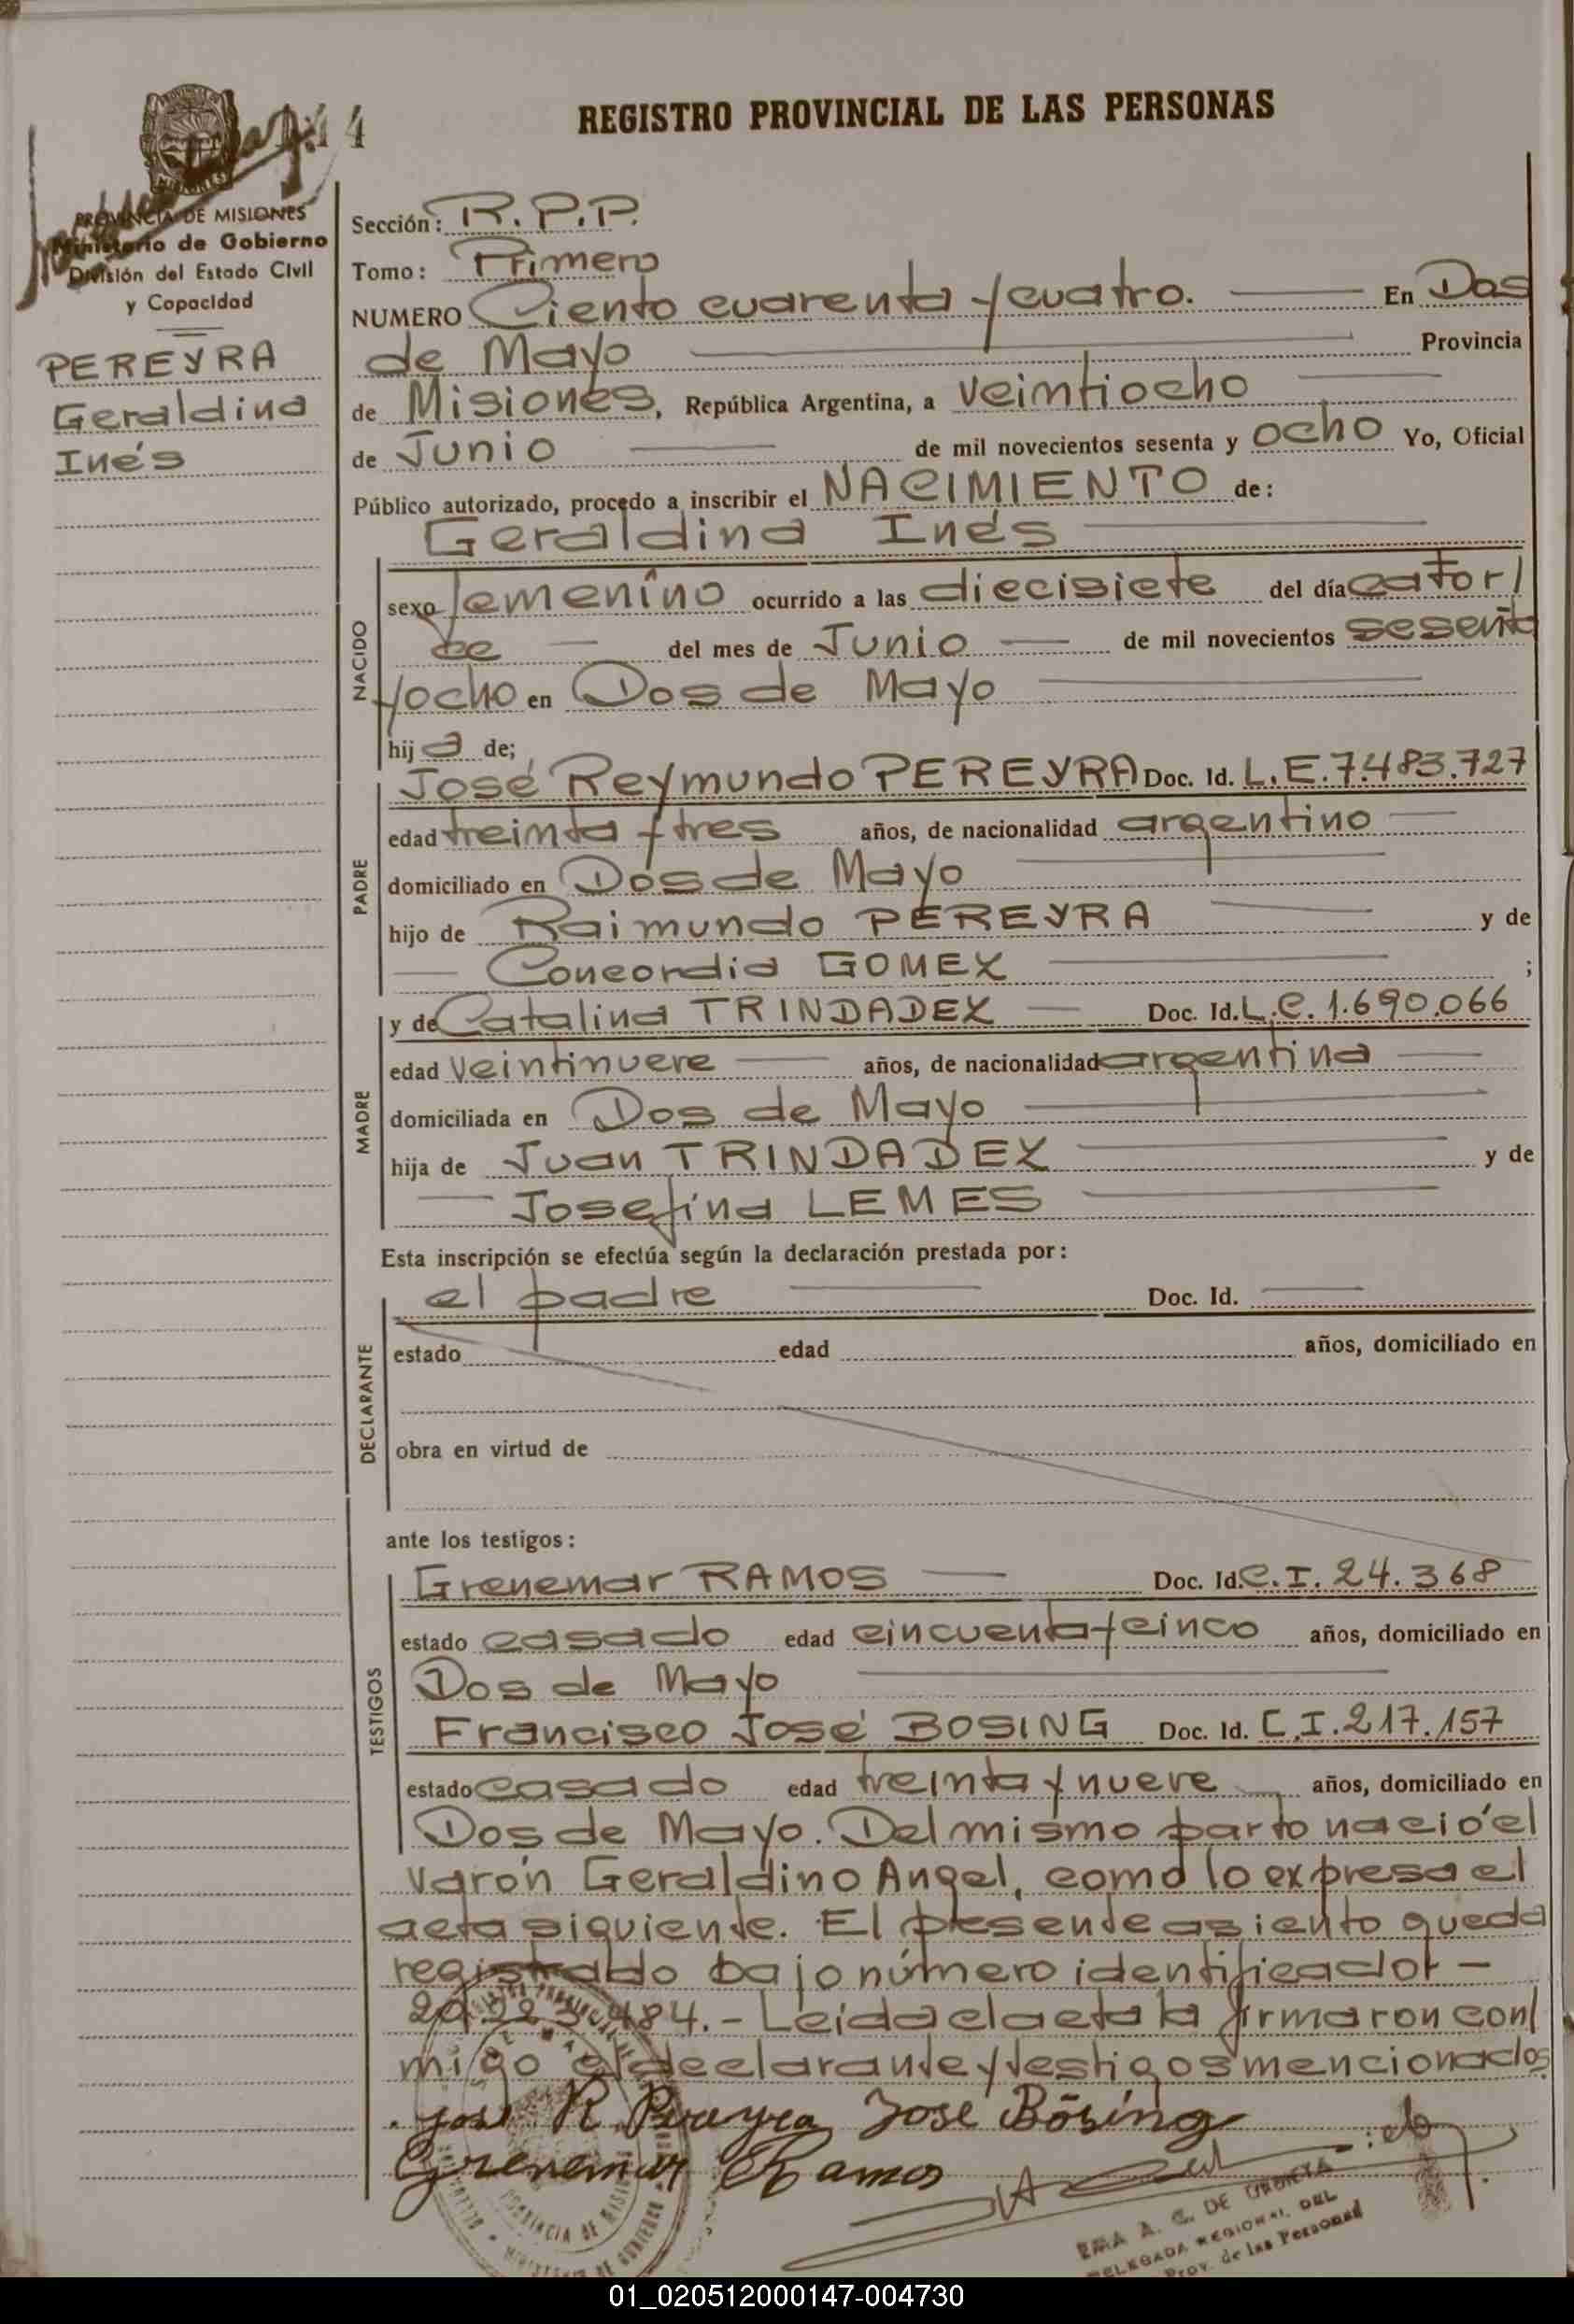 144
REGISTRO PROVINCIAL DE LAS PERSONAS
PROVINCIA DE MISIONES
Ministerio de Gobierno
División del Estado Civil
y Capacidad
PEREYRA
Geraldina
Inés
Sección: R.P.P.
Tomo: Primero
NUMERO Ciento cuarenta y cuatro. En Dos
de Mayo Provincia
de Misiones, República Argentina, a veintiocho
de Junio de mil novecientos sesenta y ocho Yo, Oficial
Público autorizado, procedo a inscribir el NACIMIENTO de:
Geraldina Inés
NACIDO
sexo femenino ocurrido a las diecisiete del día cator/
ce del mes de Junio de mil novecientos sesenta
y ocho en Dos de Mayo
hij a de;
PADRE
José Reymundo PEREYRA Doc. Id. L.E.7.483.727
edad treinta y tres años, de nacionalidad argentino
domiciliado en Dos de Mayo
hijo de Raimundo PEREYRA y de
Concordia GOMEZ ;
MADRE
y de Catalina TRINDADEZ Doc. Id. L.C. 1.690.066
edad veintinueve años, de nacionalidad argentina
domiciliada en Dos de Mayo
hija de Juan TRINDADEZ y de
Josefina LEMES
Esta inscripción se efectúa según la declaración prestada por:
DECLARANTE
el padre Doc. Id.
estado edad años, domiciliado en
obra en virtud de
ante los testigos:
TESTIGOS
Grenemar RAMOS Doc. Id. C.I. 24.368
estado casado edad cincuenta y cinco años, domiciliado en
Dos de Mayo
Francisco José BOSING Doc. Id. C.I. 217.157
estado casado edad treinta y nueve años, domiciliado en
Dos de Mayo. Del mismo parto nació el
varón Geraldino Angel, como lo expresa el
acta siguiente. El presente asiento queda
registrado bajo número identificador -
20.223.484. - Leída el acta la firmaron con/
migo el declarante y testigos mencionados
. José R. Pereyra José Bösing
Grenemar Ramos
EMA A. C. DE URDIETA
DELEGADA REGIONAL DEL
Prov. de las Personas
01_020512000147-004730